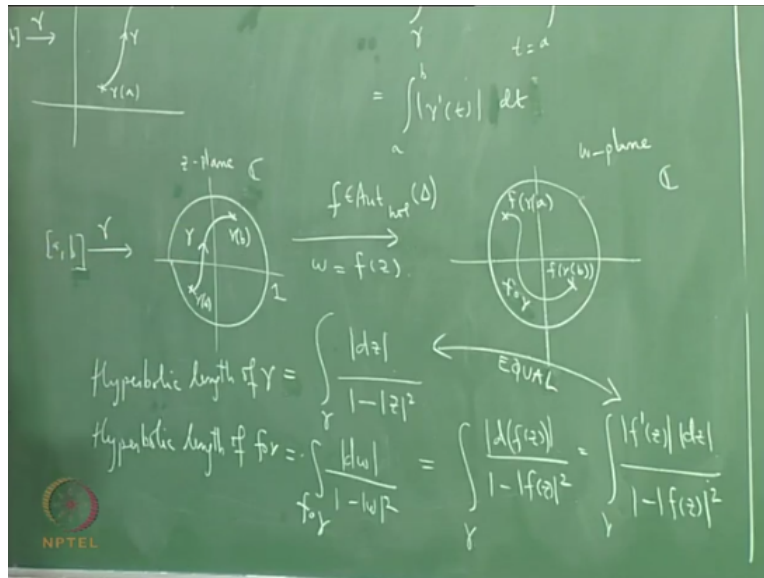 b] → γ
γ
γ(a)
γ
t = a
= ∫_a^b |γ'(t)| dt
z-plane ℂ
w-plane
ℂ
[a,b] → γ
γ
γ(b)
γ(a)
1
f ∈ Aut_hol(Δ)
w = f(z).
f(γ(a))
f(γ(b))
f∘γ
Hyperbolic length of γ = ∫_γ |dz| / (1-|z|²)
EQUAL
Hyperbolic length of f∘γ = ∫_{f∘γ} |dw| / (1-|w|²) = ∫_γ |d(f(z))| / (1-|f(z)|²) = ∫_γ |f'(z)| |dz| / (1-|f(z)|²)
NPTEL